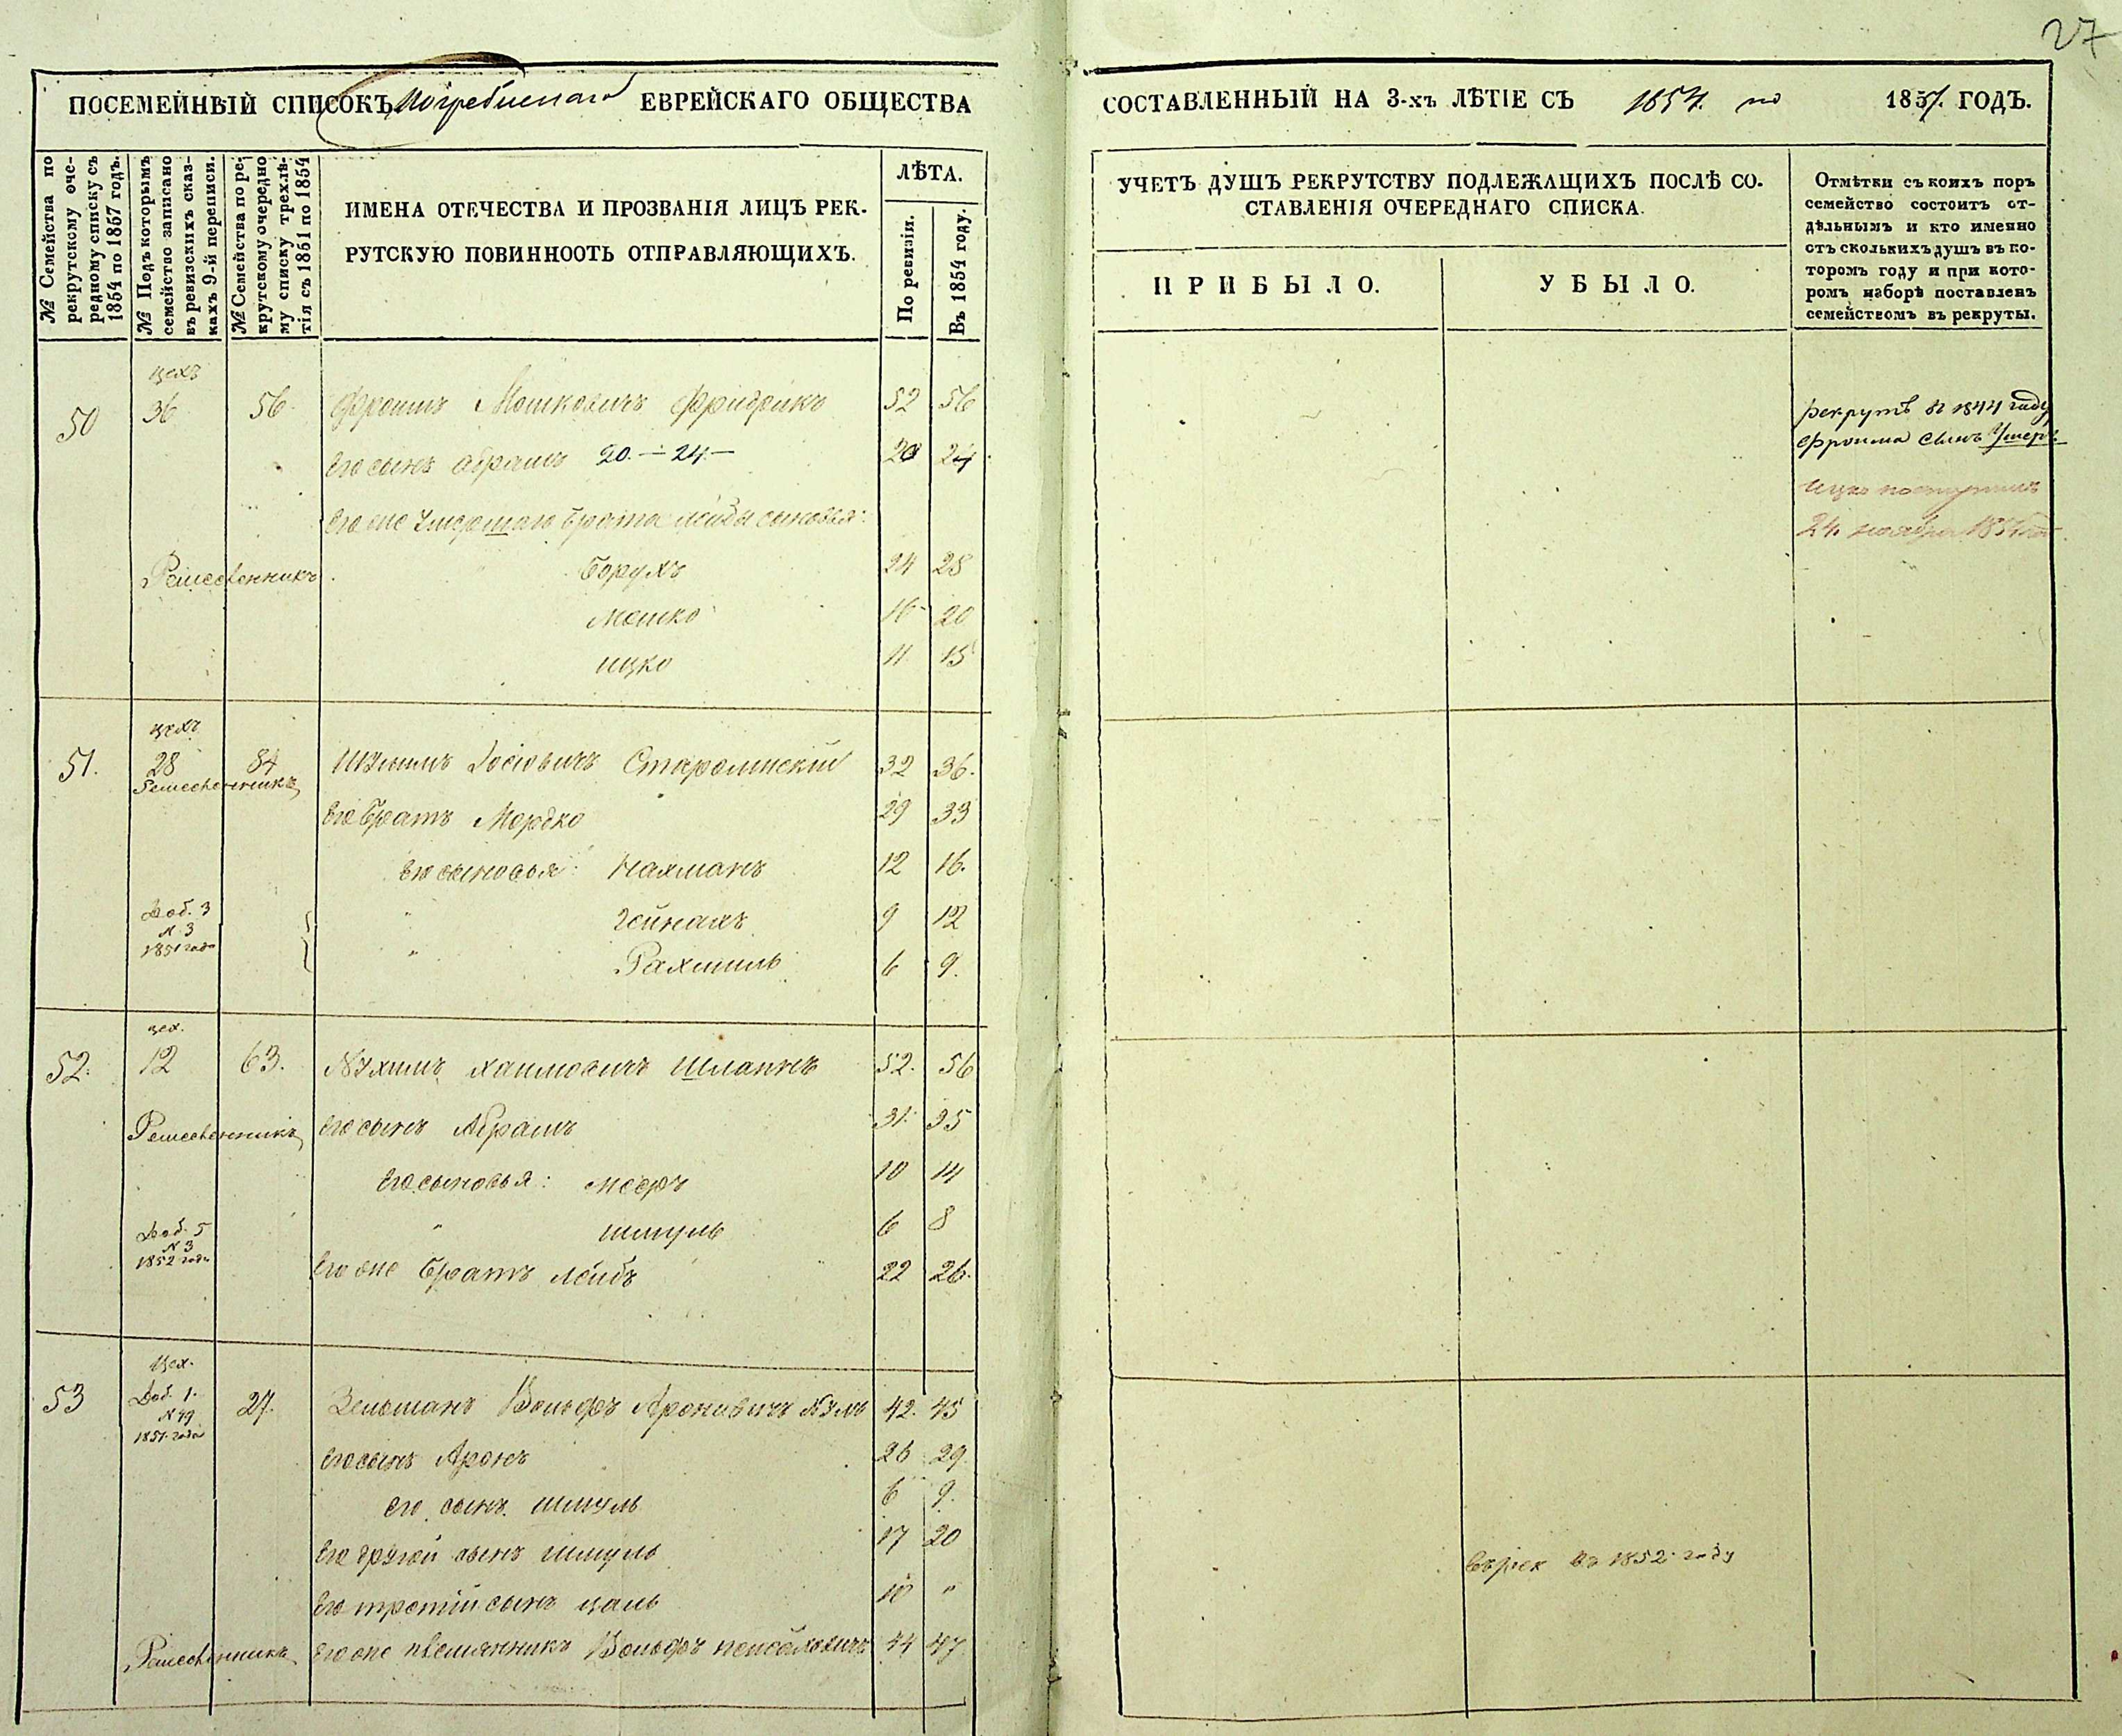 27
ПОСЕМЕЙНЫЙ СПИСОКЪ Погребискаго ЕВРЕЙСКАГО ОБЩЕСТВА
СОСТАВЛЕННЫЙ НА 3-хъ ЛѢТІЕ СЪ 1854. по 1857. ГОДЪ.
№ Семейства по
рекрутскому оче-
редному списку съ
1854 по 1857 годъ.
№ Подъ которымъ
семейство записано
въ ревизскихъ сказ-
кахъ 9-й переписи.
№ Семейства по ре-
крутскому очередно
му списку трехлѣ-
тія съ 1851 по 1854
ИМЕНА ОТЕЧЕСТВА И ПРОЗВАНІЯ ЛИЦЪ РЕК-
РУТСКУЮ ПОВИННООТЬ ОТПРАВЛЯЮЩИХЪ.
ЛѢТА.
По ревизіи.
Въ 1854 году.
УЧЕТЪ ДУШЪ РЕКРУТСТВУ ПОДЛЕЖАЩИХЪ ПОСЛѢ СО-
СТАВЛЕНІЯ ОЧЕРЕДНАГО СПИСКА.
ПРИБЫЛО.
УБЫЛО.
Отмѣтки съ коихъ поръ
семейство состоитъ от-
дѣльнымъ и кто именно
отъ сколькихъ душъ въ ко-
торомъ году и при кото-
ромъ наборѣ поставленъ
семействомъ въ рекруты.
цехъ
50 36 56 Фроимъ Мошковичъ Фридрихъ 52 56
рекрутъ въ 1844 году
Фроима сынъ
его сынъ Абрамъ 20.—24— 20 24
Ицко поступилъ
его же умершаго брата Лейбы сыновья:
24. ноября
Ремесленникъ Борухъ 24 28
Мошко 16 20
Ицко 11 15
цехъ
51. 28 84 Шулимъ Іосіовичъ 32 36.
Ремесленникъ
его братъ Мордко 29 33
его сыновья: Нахманъ 12 16.
Доб. 3
№ 3
1851 года
" Гейнахъ 9 12
" Рахмиль 6 9.
цех.
52. 12 63. Нухимъ Хаимовичъ Шлапакъ 52. 56
Ремесленникъ его сынъ Абрамъ 31. 35
его сыновья: Мееръ 10 14
Доб. 5
№ 3
1852 года
" Шмуль 6 8
его же братъ Лейбъ 22 26.
Цех.
53 Доб. 1. 27. Зельманъ Вольфъ Ароновичъ 42. 45
№ 49
1851. года
его сынъ Аронъ 26 29.
его сынъ Шмуль 6 9.
его другой сынъ Шмуль 17 20
въ рек въ 1852 году
его третій сынъ Цаль 10 "
Ремесленникъ его же племянникъ Вольфъ 44 47